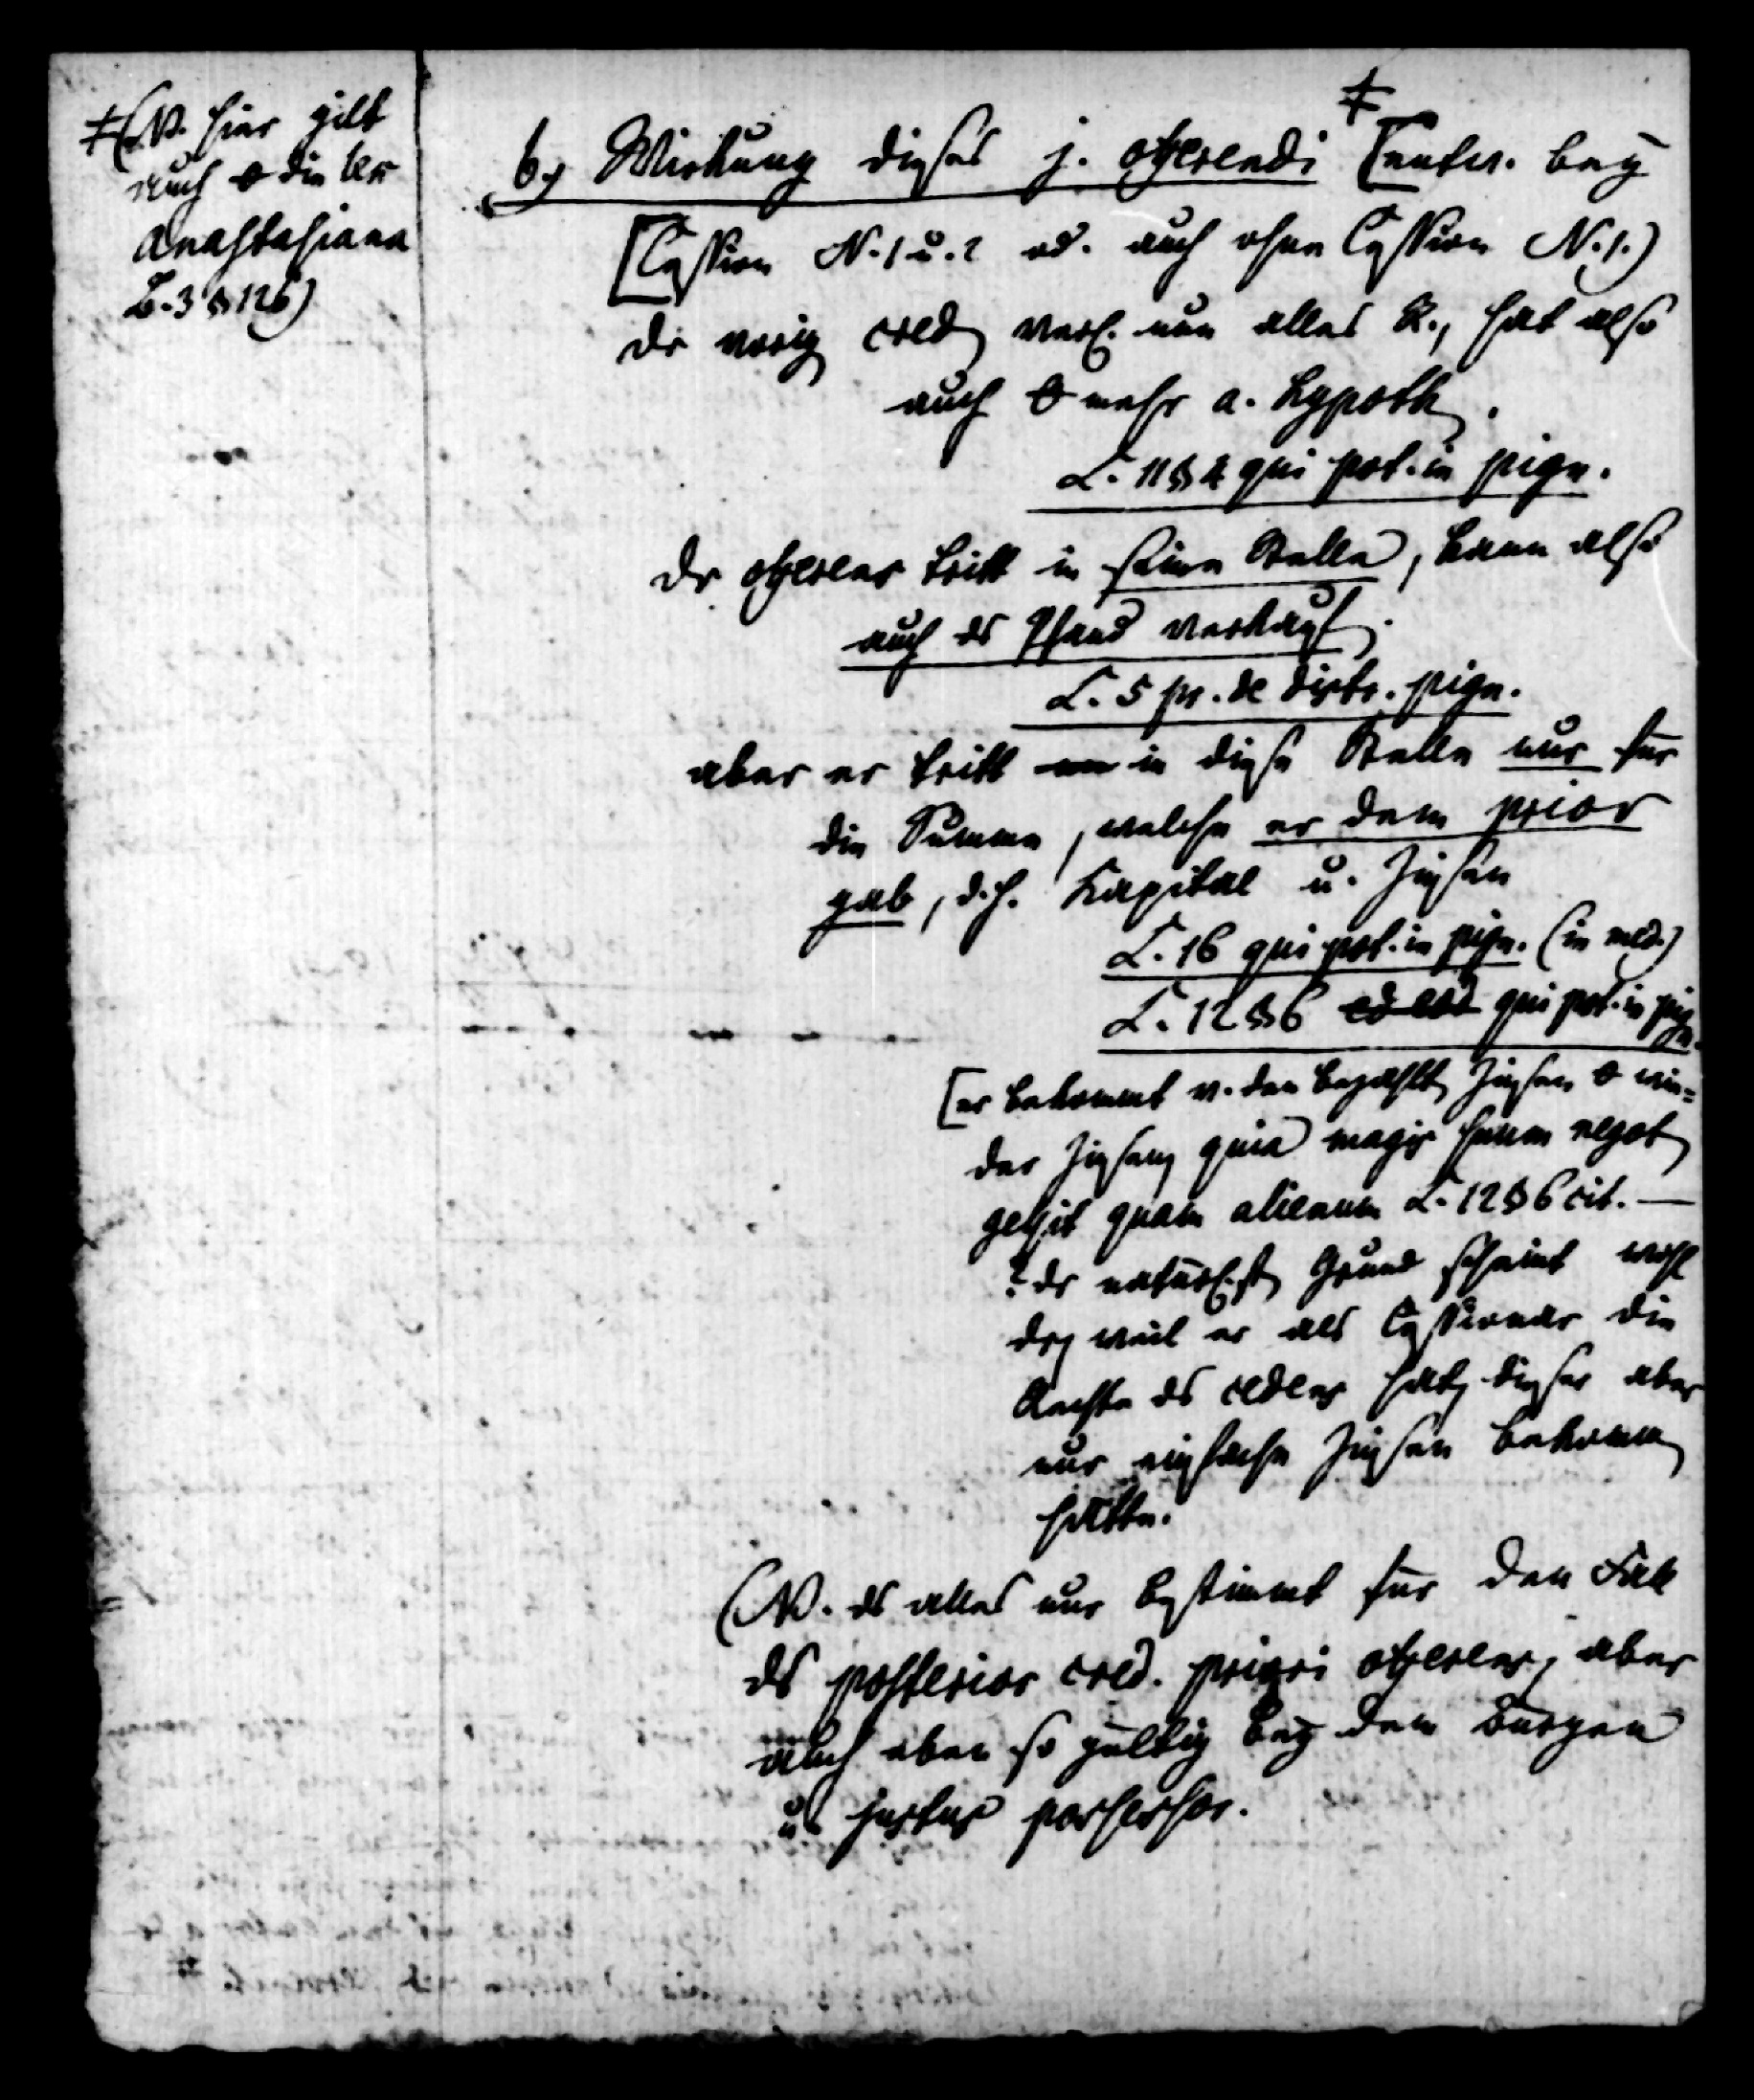 ‡ (NB. hier gilt
auch 0 die lex
Anastasiana
B. 3 § 126)
b, Wirkung dieses j. offerendi ‡ [entw. bey
[Cession N. 1 u. 2 od. auch ohne Cession N. 1.)
dr vorig cred verl. nun alles R., hat also
auch 0 mehr a. hypoth.
L. 11 § 4 qui pot. in pign.
dr offerens tritt in seine Stelle, kann also
auch ds Pfand verkauf.
L. 5 pr. de distr. pign.
aber er tritt in diese Stelle nur für
die Summe, welche er dem prior
gab, d.h. Kapital u. Zinsen
L. 16 qui pot. in pign. (in med.)
L. 12 § 6 qui pot. in pign.
[er bekommt v. den bezahlt Zinsen 0 wie=
der Zinsen, quia magis suum negot
gessit quam alienum L. 12 § 6 cit. —
? dr natürlichst Grund scheint wohl
der, weil er als Cessionar die
Rechte ds cedens hat, dieser aber
nur einfache Zinsen bekomm
hätte.
(NB. ds alles nur bestimmt für den Fall
ds posterior cred. priori offerens, aber
auch eben so gültig bey dem Bürgen
u. justus possessor.